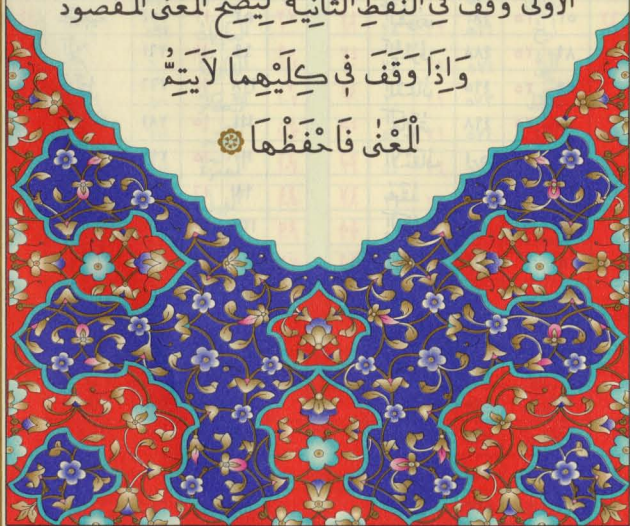 الاولى وقف فى النقط الثانية ليتضح المعنى المقصود
وَاِذَا وَقَفَ فِى كِلَيْهِمَا لَايَتِمُّ
الْمَعْنٰى فَاحْفَظْهَا